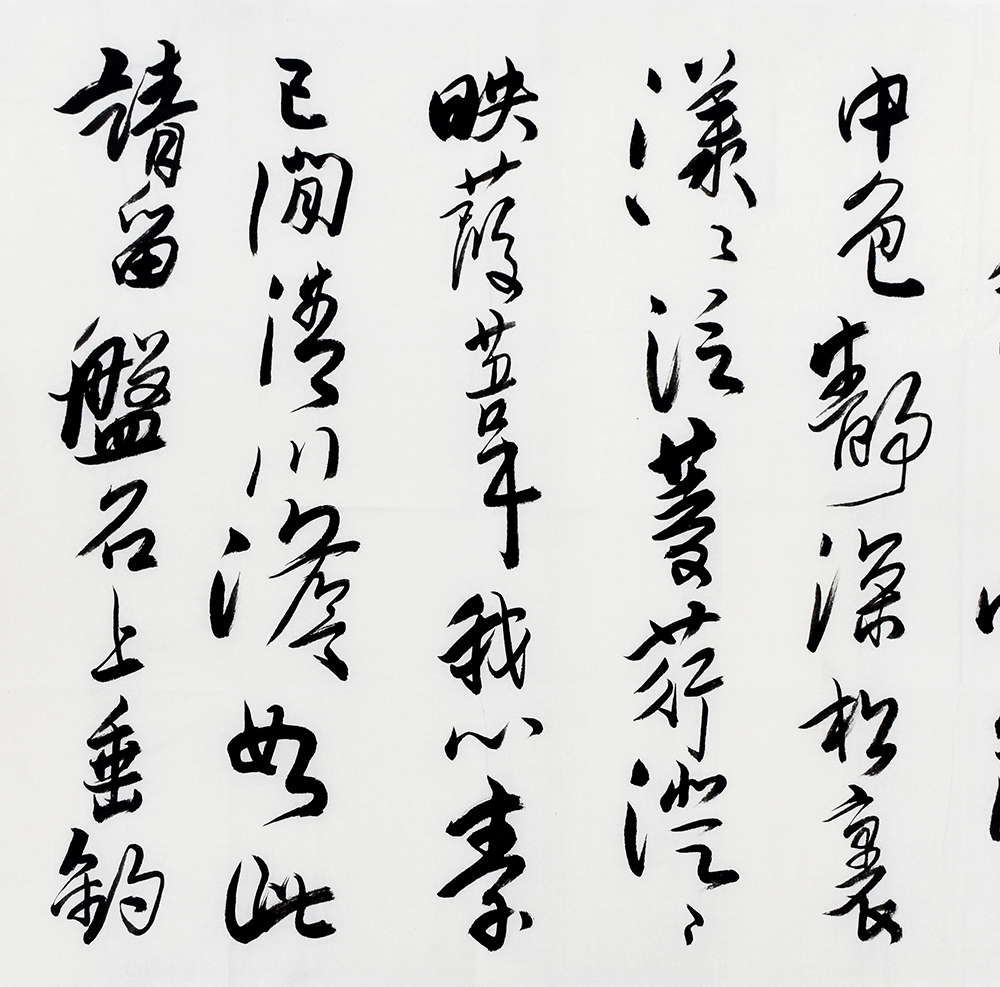 中色靜深松裏
漾〻泛菱荇澄〻
映葭葦我心素
已閒清川澹如此
請留盤石上垂釣